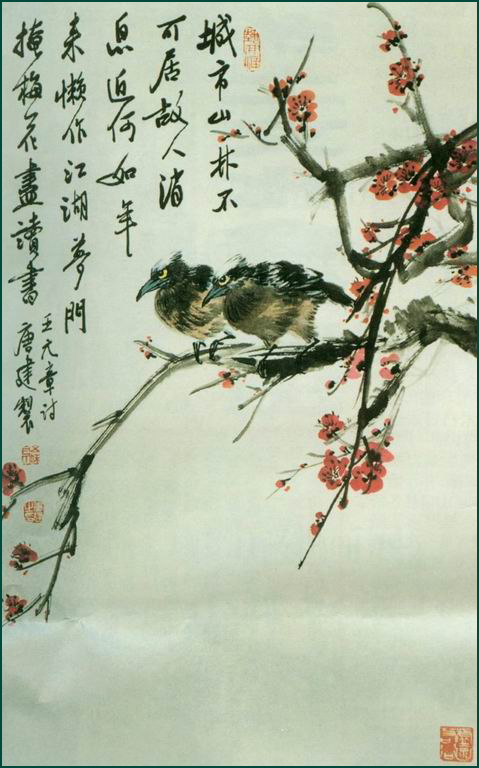 城市山林不
可居故人消
息近何如年
来懶作江湖夢門
掩梅花盡讀書
王元章詩
唐建製